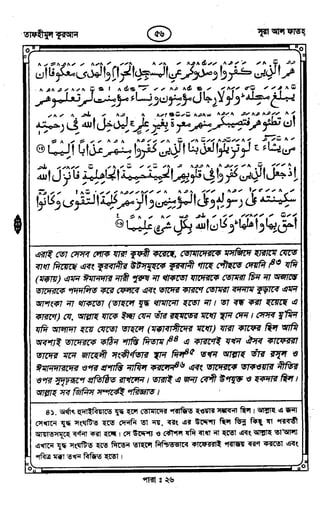 তাফহীমুল কুরআন
৫৬
সূরা আল ফাতহ
هُمُ الَّذِينَ كَفَرُوا وَصَدُّوكُمْ عَنِ الْمَسْجِدِ الْحَرَامِ وَالْهَدْيَ مَعْكُوفًا أَنْ
يَبْلُغَ مَحِلَّهُ ۚ وَلَوْلَا رِجَالٌ مُؤْمِنُونَ وَنِسَاءٌ مُؤْمِنَاتٌ لَمْ تَعْلَمُوهُمْ
أَنْ تَطَئُوهُمْ فَتُصِيبَكُمْ مِنْهُمْ مَعَرَّةٌ بِغَيْرِ عِلْمٍ ۖ لِيُدْخِلَ اللَّهُ فِي رَحْمَتِهِ
مَنْ يَشَاءُ ۚ لَوْ تَزَيَّلُوا لَعَذَّبْنَا الَّذِينَ كَفَرُوا مِنْهُمْ عَذَابًا أَلِيمًا
إِذْ جَعَلَ الَّذِينَ كَفَرُوا فِي قُلُوبِهِمُ الْحَمِيَّةَ حَمِيَّةَ الْجَاهِلِيَّةِ فَأَنْزَلَ اللَّهُ
سَكِينَتَهُ عَلَىٰ رَسُولِهِ وَعَلَى الْمُؤْمِنِينَ وَأَلْزَمَهُمْ كَلِمَةَ التَّقْوَىٰ وَكَانُوا
أَحَقَّ بِهَا وَأَهْلَهَا ۚ وَكَانَ اللَّهُ بِكُلِّ شَيْءٍ عَلِيمًا
এরাই তো সেসব লোক যারা কুফরী করেছে, তোমাদেরকে মসজিদে হারামে যেতে
বাধা দিয়েছে এবং কুরবানীর উটসমূহকে কুরবানী গাহে পৌছতে দেয়নি।৪৩ যদি
(মক্কায়) এমন ঈমানদার নারী পুরুষ না থাকতো যাদেরকে তোমরা চিন না অজান্তে
তাদেরকে পদদলিত করে ফেলবে এবং তাদের কারণে তোমরা বদনাম কুড়াবে এমন
আশংকা না থাকতো (তাহলে যুদ্ধ থামানো হতো না। তা বন্ধ করা হয়েছে এ
কারণে) যে, আল্লাহ যাকে ইচ্ছা যেন তাঁর রহমতের মধ্যে স্থান দেন। সেসব মু'মিন
যদি আলাদা হয়ে যেতো তাহলে (মক্কাবাসীদের মধ্যে) যারা কাফের ছিল আমি
অবশ্যই তাদেরকে কঠিন শাস্তি দিতাম।৪৪ এ কারণেই যখন ঐসব কাফেররা
তাদের মনে জাহেলী সংকীর্ণতার স্থান দিল৪৫ তখন আল্লাহ তাঁর রসূল ও
ঈমানদারদের ওপর প্রশান্তি নাযিল করলেন৪৬ এবং তাদেরকে তাকওয়ার নীতির
ওপর সুদৃঢ়রূপে প্রতিষ্ঠিত রাখলেন। তারাই এ জন্য বেশী উপযুক্ত ও হকদার ছিল।
আল্লাহ সব জিনিস সম্পর্কেই পরিজ্ঞাত।
৪১. অর্থাৎ হুদাইবিয়াতে যুদ্ধ হলে তোমাদের পরাজিত হওয়ার সম্ভাবনা ছিল। আল্লাহ এ জন্য
সেখানে যুদ্ধ সংঘটিত হতে দেননি তা নয়, বরং এর উদ্দেশ্য ছিল ভিন্ন কিছু যা পরবর্তী
আয়াতসমূহে বর্ণনা করা হচ্ছে। সে উদ্দেশ্য ও কৌশল যদি বাধা না হতো এবং আল্লাহ তা'আলা
এখানে যুদ্ধ সংঘটিত হতে দিতেন তাহলে নিশ্চিতভাবে কাফেররাই পরাজয় বরণ করতো এবং
পবিত্র মক্কা তখন বিজিত হতো।
পারা : ২৬